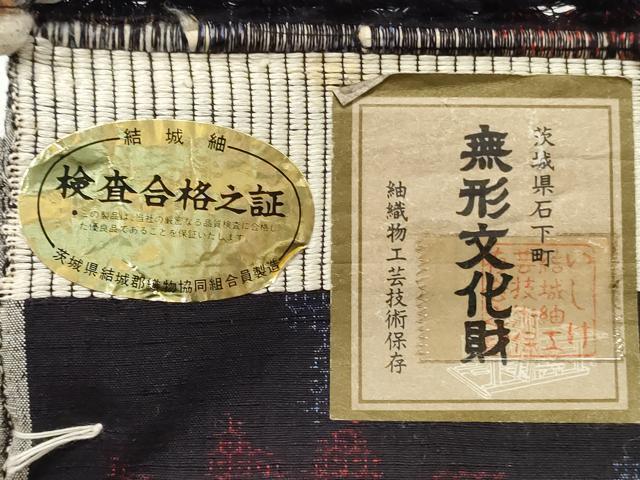 結城紬
検査合格之証
●この製品は、当社の厳密なる品質検査に合格し
た優良品であることを保証いたします
茨城県結城郡織物協同組合員製造
茨城県石下町
無形文化財
紬織物工芸技術保存
いしげ
結城紬工
芸技術保